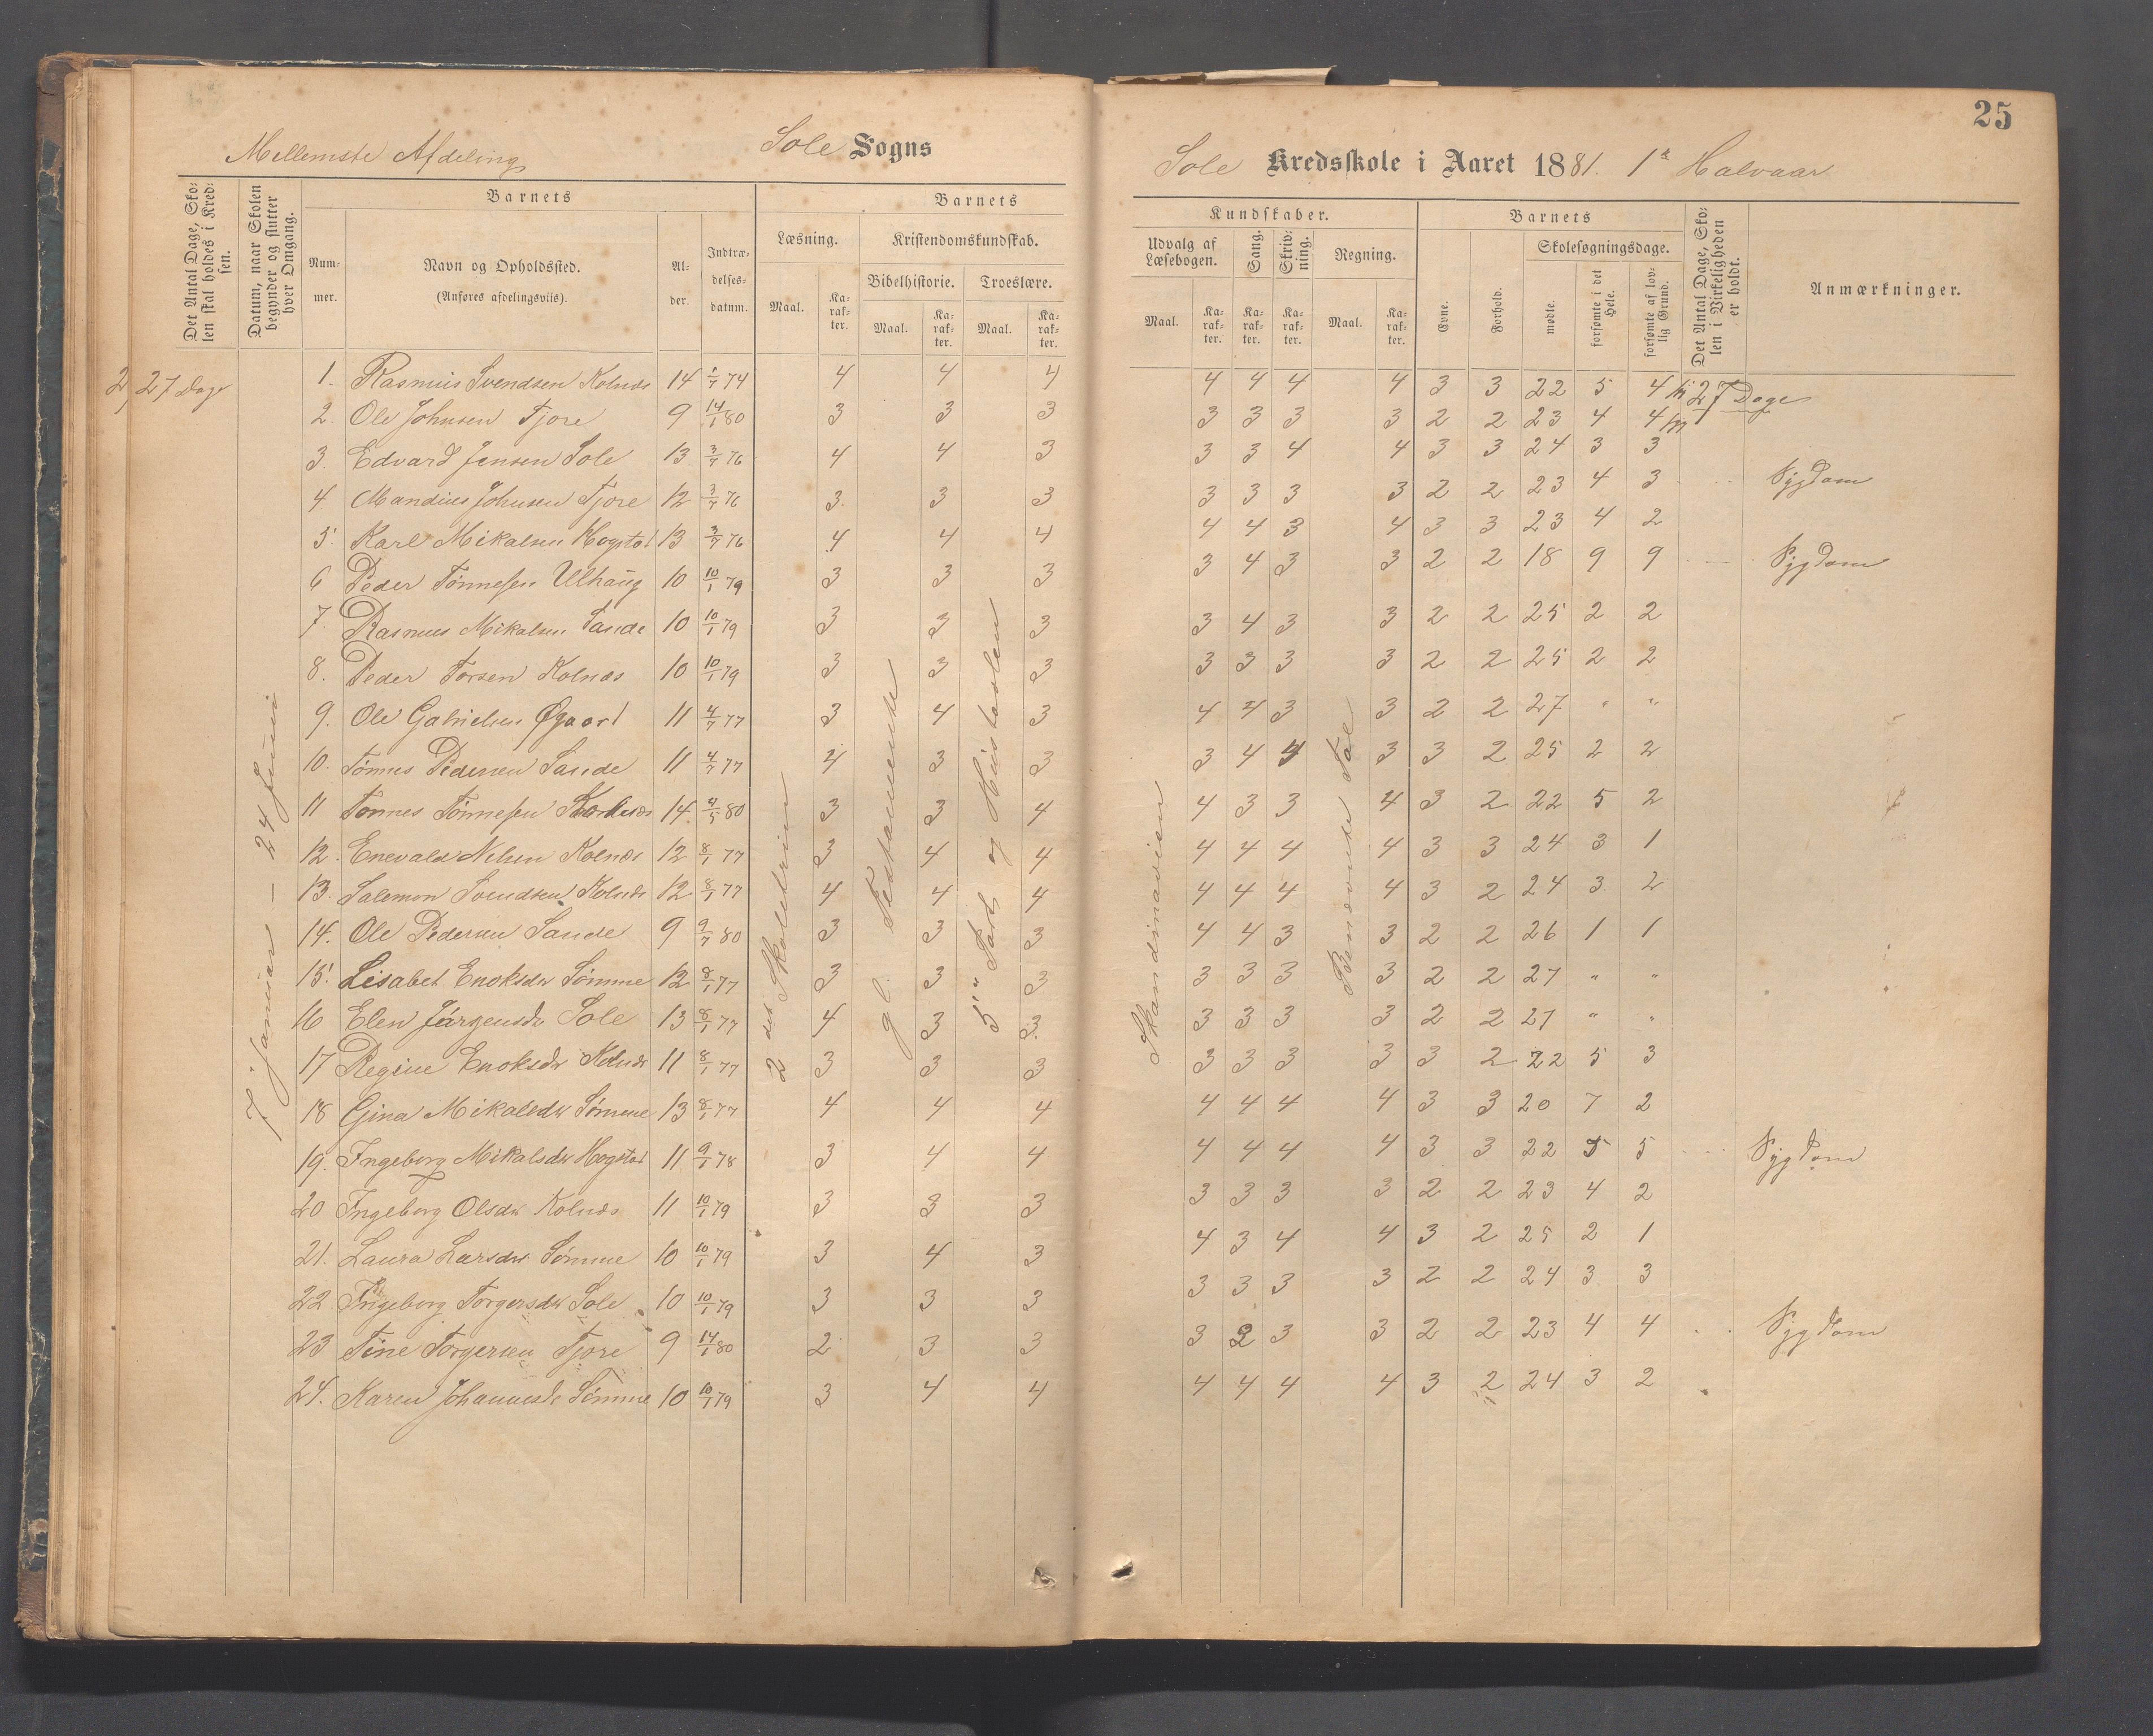 25
Mellemste Afdeling
Sole Sogns
Sole Kredsskole i Aaret 1881. 1ste Halvaar
Det Antal Dage, Skolen skal holdes i Kredsen.
Datum, naar Skolen begynder og slutter hver Omgang.
Barnets
Nummer.
Navn og Opholdssted.
(Anføres afdelingsviis).
Alder.
Indtrædelsesdatum.
Barnets
Læsning.
Kristendomskundskab.
Bibelhistorie.
Troeslære.
Maal.
Karakter.
Maal.
Karakter.
Maal.
Karakter.
Kundskaber.
Udvalg af Læsebogen.
Sang.
Skrivning.
Regning.
Maal.
Karakter.
Karakter.
Karakter.
Maal.
Karakter.
Barnets
Evne.
Forhold.
Skolesøgningsdage.
mødte.
forsømte i det Hele.
forsømte af lovlig Grund.
Det Antal Dage, Skolen i Virkeligheden er holdt.
Anmærkninger.
27 Dage
7 januar – 24 Juni
2det Skoletrin
gl. Testamente
5te Part og Hustavlen
Skandinavien
Benævnte Tal
1. Rasmus Svendsen Kolnes 14 1/7 74 4 4 4 4 4 4 4 3 3 22 5 4 27 Dage
2. Ole Johnsen Tjore 9 14/1 80 3 3 3 3 3 3 3 2 2 23 4 4
3. Edvard Jensen Sole 13 3/7 76 4 4 3 3 3 4 4 3 3 24 3 3
4 Mandius Johnsen Tjore 12 3/7 76 3 3 3 3 3 3 3 2 2 23 4 3 Sygdom
5. Karl Mikalsen Hogstad 13 3/7 76 4 4 4 4 4 3 4 3 3 23 4 2
6 Peder Tønnesen Ulhaug 10 10/1 79 3 3 3 3 4 3 3 2 2 18 9 9 Sygdom
7. Rasmus Mikalsen Sande 10 10/1 79 3 3 3 3 4 3 3 2 2 25 2 2
8. Peder Torsen Kolnes 10 10/1 79 3 3 3 3 3 3 3 2 2 25 2 2
9. Ole Gabrielsen Øgaard 11 4/7 77 3 4 3 4 4 3 3 2 2 27 " "
10. Tønnes Pedersen Sande 11 4/7 77 4 3 3 3 4 4 3 3 2 25 2 2
11 Tønnes Tønnesen 14 4/5 80 3 3 4 4 3 3 4 3 2 22 5 2
12. Enevald Nelsen Kolnes 12 8/1 77 3 4 4 4 4 4 4 3 3 24 3 1
13. Salemon Svendsen Kolnes 12 8/1 77 4 4 4 4 4 4 4 3 2 24 3 2
14. Ole Pedersen Sande 9 9/7 80 3 3 3 4 4 3 3 2 2 26 1 1
15. Lisabet Enoksdr Sømme 12 8/1 77 3 3 3 3 3 3 3 2 2 27 " "
16 Elen Jørgensdr Sole 13 8/1 77 4 3 3 3 3 3 3 2 2 27 " "
17 Regine Enoksdr Kolnes 11 8/1 77 3 3 3 3 3 3 3 3 2 22 5 3
18 Gina Mikalsdr Sømme 13 8/1 77 4 4 4 4 4 4 4 3 3 20 7 2
19. Ingeborg Mikalsdr Hogstad 11 9/1 78 3 4 4 4 4 4 4 3 3 22 5 5 Sygdom
20 Ingeborg Olsdr Kolnes 11 10/1 79 3 3 3 3 3 3 3 2 2 23 4 2
21. Laura Larsdr Sømme 10 10/1 79 3 4 3 4 3 4 4 3 2 25 2 1
22. Ingeborg Torgersdr Sole 10 10/1 79 3 3 3 3 3 3 3 2 2 24 3 3
23 Tine Torgersen Tjore 9 14/1 80 2 3 3 3 2 3 3 2 2 23 4 4 Sygdom
24. Karen Johannesdr Sømme 10 10/1 79 3 4 4 4 4 4 4 3 2 24 3 2